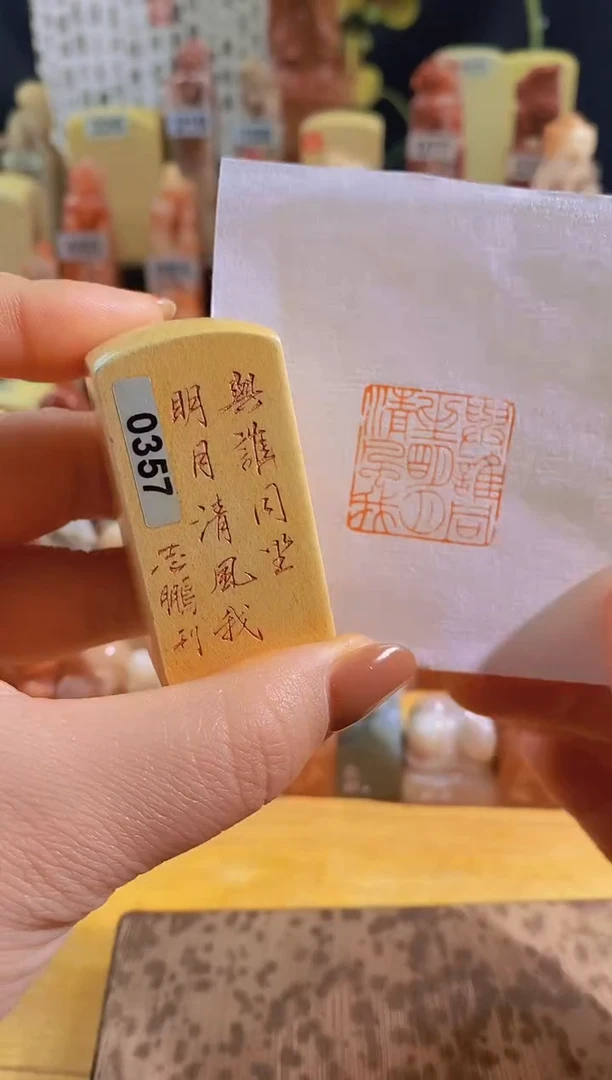 與誰同坐
明月清風我
志鵬刊
0357
與誰同
坐明月
清風我